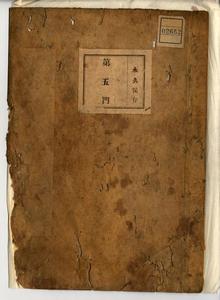 永久保存
第五門
02652